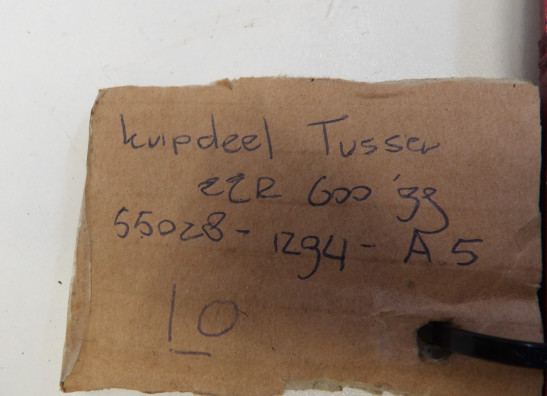 kuipdeel Tussen
ZZR 600 '99
55028-1294-A5
10